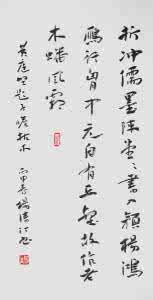 折冲儒墨陈堂堂书入颜杨鸿
雁行胸中元自有丘壑故作老
木蟠风霜
黄庭坚题子瞻枯木
丙申春杨清汀书